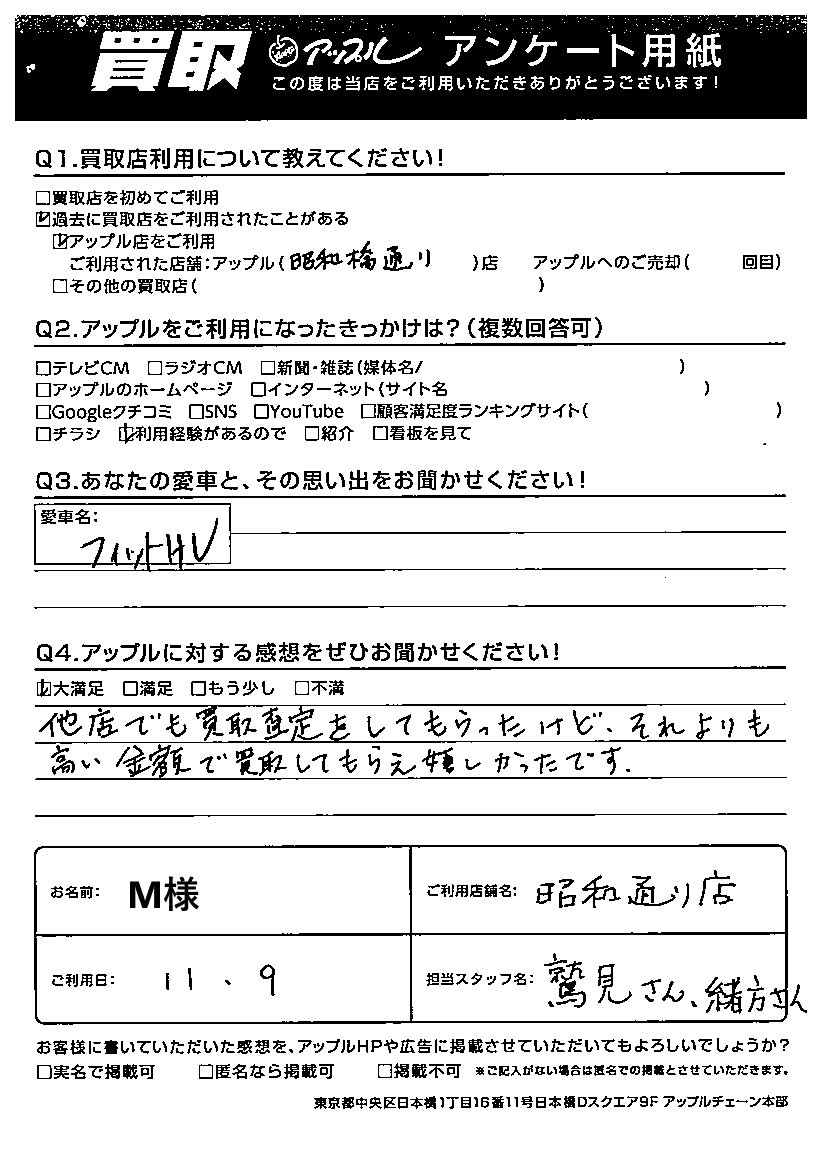 買取 アップル アンケート用紙
この度は当店をご利用いただきありがとうございます!
Q1.買取店利用について教えてください!
□買取店を初めてご利用
☑過去に買取店をご利用されたことがある
☑アップル店をご利用
ご利用された店舗:アップル(昭和橋通り)店 アップルへのご売却( 回目)
□その他の買取店( )
Q2.アップルをご利用になったきっかけは?(複数回答可)
□テレビCM □ラジオCM □新聞・雑誌(媒体名/ )
□アップルのホームページ □インターネット(サイト名 )
□Googleクチコミ □SNS □YouTube □顧客満足度ランキングサイト( )
□チラシ ☑利用経験があるので □紹介 □看板を見て
Q3.あなたの愛車と、その思い出をお聞かせください!
愛車名:
フィットHV
Q4.アップルに対する感想をぜひお聞かせください!
☑大満足 □満足 □もう少し □不満
他店でも買取査定をしてもらったけど、それよりも
高い金額で買取してもらえ嬉しかったです.
お名前: M様 ご利用店舗名: 昭和通り店
ご利用日: 11、9 担当スタッフ名: 鷲見さん、緒方さん
お客様に書いていただいた感想を、アップルHPや広告に掲載させていただいてもよろしいでしょうか?
□実名で掲載可 □匿名なら掲載可 □掲載不可 ※ご記入がない場合は匿名での掲載とさせていただきます。
東京都中央区日本橋1丁目16番11号日本橋Dスクエア9F アップルチェーン本部